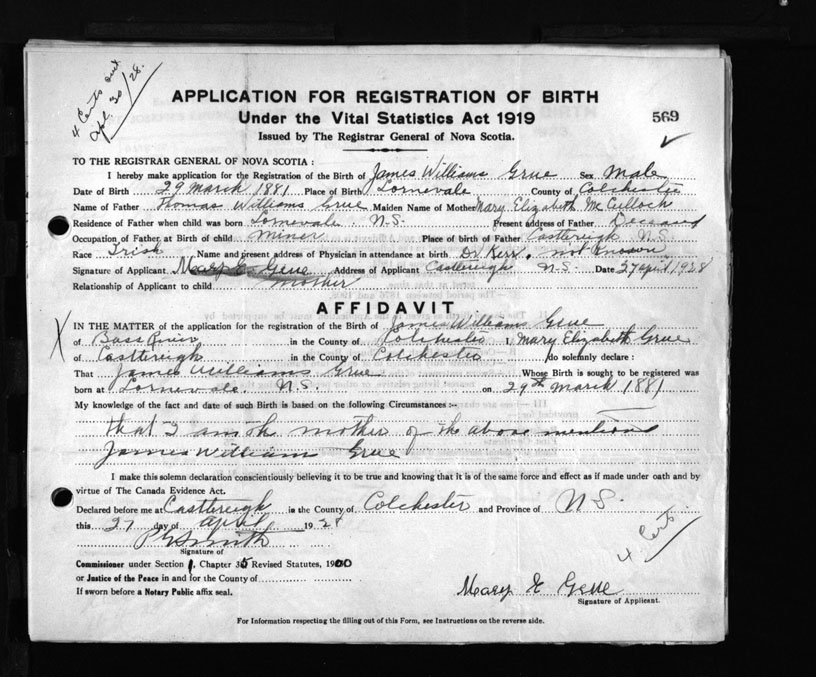 4 Certs out.
Apl. 30/28.
APPLICATION FOR REGISTRATION OF BIRTH
Under the Vital Statistics Act 1919
569
Issued by The Registrar General of Nova Scotia.
TO THE REGISTRAR GENERAL OF NOVA SCOTIA :
I hereby make application for the Registration of the Birth of James Williams Grue Sex Male
Date of Birth 29 March 1881 Place of Birth Lornevale County of Colchester
Name of Father Thomas Williams Grue Maiden Name of Mother Mary Elizabeth McCulloch
Residence of Father when child was born Lornevale. N.S. Present address of Father Deceased
Occupation of Father at Birth of child Miner Place of birth of Father Castlereigh N.S.
Race Irish Name and present address of Physician in attendance at birth Dr Kerr. not Known
Signature of Applicant Mary E Grue Address of Applicant Castlereigh N.S. Date 27 April 1928
Relationship of Applicant to child mother
AFFIDAVIT
IN THE MATTER of the application for the registration of the Birth of James Williams Grue
of Bass River in the County of Colchester I, Mary Elizabeth Grue
of Castlereigh in the County of Colchester do solemnly declare :
That James Williams Grue Whose Birth is sought to be registered was
born at Lornevale. N.S. on 29th March 1881
My knowledge of the fact and date of such Birth is based on the following Circumstances :-
that I am the mother of the above mentioned
James William Grue
I make this solemn declaration conscientiously believing it to be true and knowing that it is of the same force and effect as if made under oath and by
virtue of The Canada Evidence Act.
Declared before me at Castlereigh in the County of Colchester and Province of N.S.
this 27 day of April 1928
Smith
Signature of
Commissioner under Section 1, Chapter 35 Revised Statutes, 1900
or Justice of the Peace in and for the County of
If sworn before a Notary Public affix seal.
4 Certs.
Mary E Grue
Signature of Applicant.
For Information respecting the filling out of this Form, see Instructions on the reverse side.